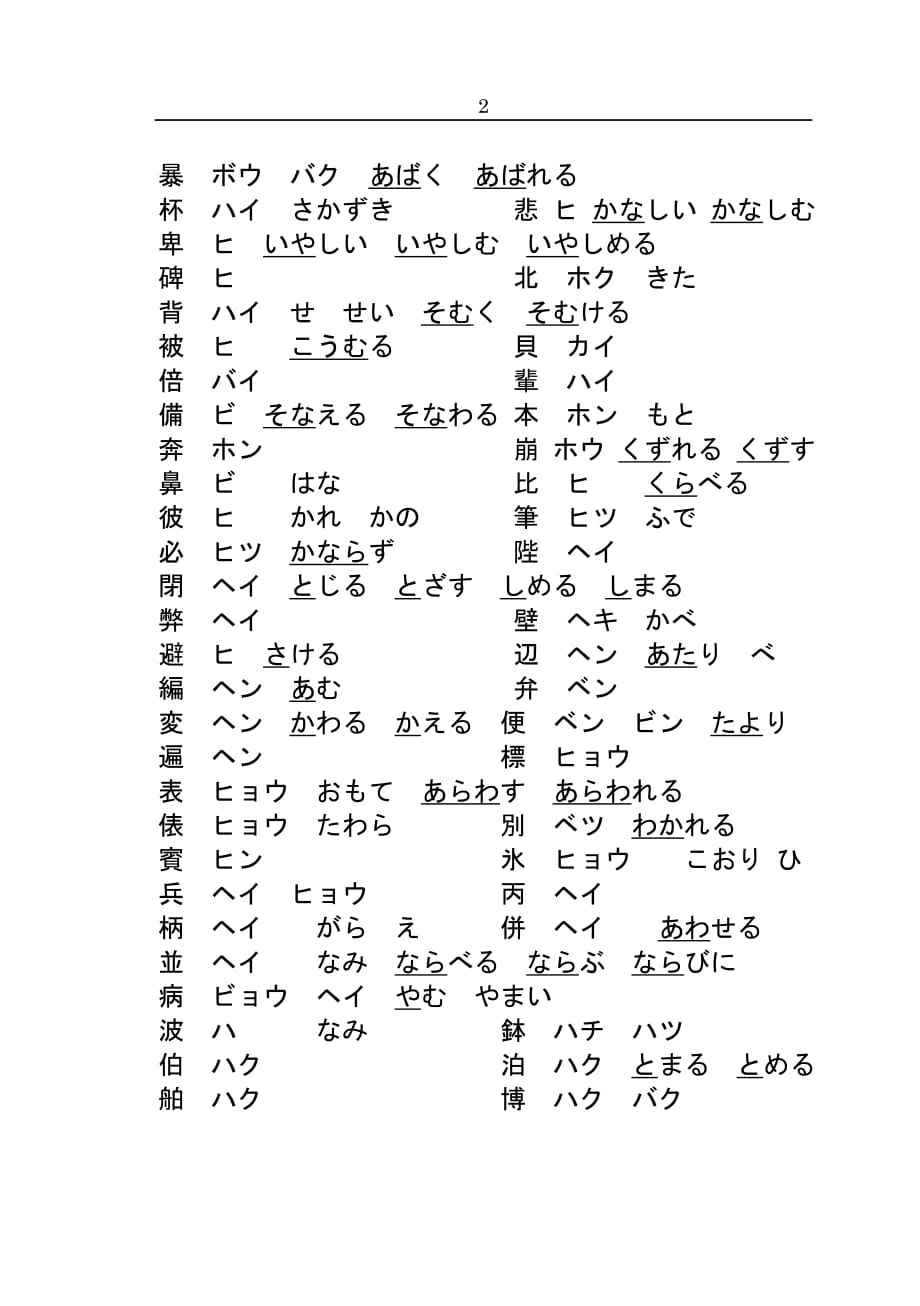 2
暴　ボウ　バク　あばく　あばれる
杯　ハイ　さかずき　　　　　悲 ヒ かなしい かなしむ
卑　ヒ　いやしい　いやしむ　いやしめる
碑　ヒ　　　　　　　　　　　北　ホク　きた
背　ハイ　せ　せい　そむく　そむける
被　ヒ　　こうむる　　　　　貝　カイ
倍　バイ　　　　　　　　　　輩　ハイ
備　ビ　そなえる　そなわる 本　ホン　もと
奔　ホン　　　　　　　　　　崩 ホウ くずれる くずす
鼻　ビ　　はな　　　　　　　比　ヒ　　くらべる
彼　ヒ　　かれ　かの　　　　筆　ヒツ　ふで
必　ヒツ　かならず　　　　　陛　ヘイ
閉　ヘイ　とじる　とざす　しめる　しまる
弊　ヘイ　　　　　　　　　　壁　ヘキ　かべ
避　ヒ　さける　　　　　　　辺　ヘン　あたり　べ
編　ヘン　あむ　　　　　　　弁　ベン
変　ヘン　かわる　かえる　便　ベン　ビン　たより
遍　ヘン　　　　　　　　　標　ヒョウ
表　ヒョウ　おもて　あらわす　あらわれる
俵　ヒョウ　たわら　　　　別　ベツ　わかれる
賓　ヒン　　　　　　　　　氷　ヒョウ　　こおり ひ
兵　ヘイ　ヒョウ　　　　　丙　ヘイ
柄　ヘイ　　がら　え　　　併　ヘイ　　あわせる
並　ヘイ　　なみ　ならべる　ならぶ　ならびに
病　ビョウ　ヘイ　やむ　やまい
波　ハ　　　なみ　　　　　鉢　ハチ　ハツ
伯　ハク　　　　　　　　　泊　ハク　とまる　とめる
舶　ハク　　　　　　　　　博　ハク　バク